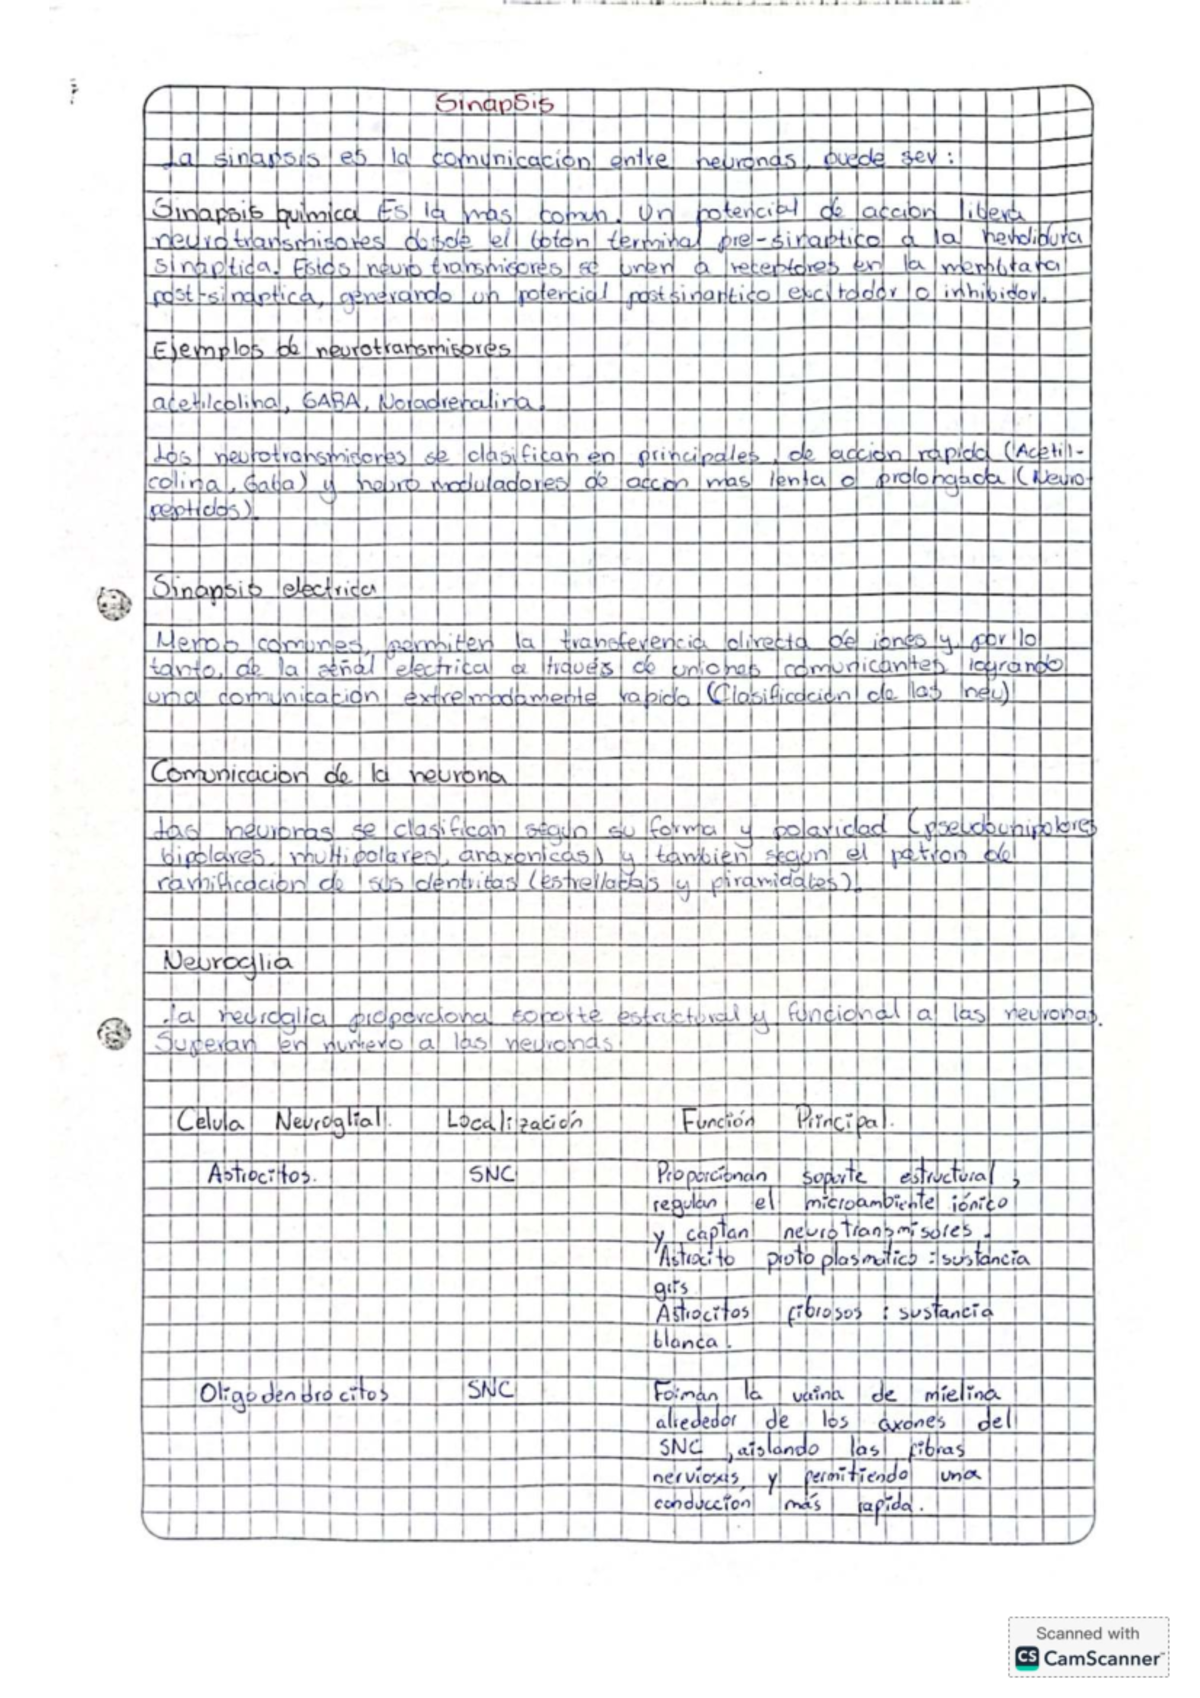 Sinapsis
La sinapsis es la comunicación entre neuronas, puede ser:
Sinapsis química Es la mas comun. Un potencial de acción libera
neurotransmisores desde el boton terminal pre-sinaptico a la hendidura
sinaptida. Estos neurotransmisores se unen a receptores en la membrana
post-sinaptica, generando un potencial postsinaptico excitador o inhibidor.
Ejemplos de neurotransmisores
acetilcolina, GABA, Noradrenalina.
Los neurotransmisores se clasifican en principales, de acción rapida (Acetil-
colina, Gaba) y neuromoduladores de accion mas lenta o prolongada (Neuro
peptidos)
Sinapsis electrica
Menos comunes, permiten la transferencia directa de iones y, por lo
tanto, de la señal electrica a través de uniones comunicantes logrando
una comunicación extremadamente rapida (Clasificacion de las neu)
Comunicacion de la neurona
Las neuronas se clasifican según su forma y polaridad (pseudounipolares
bipolares, multipolares, anaxonicas) y tambien segun el patron de
ramificacion de sus dentritas (estrelladas y piramidales).
Neuroglia
La neuroglia proporciona soporte estructural y funcional a las neuronas.
Superan en numero a las neuronas
Celula Neuroglial. Localización Función Principal.
Astrocitos. SNC Proporcionan soporte estructural,
regulan el microambiente iónico
y captan neurotransmisores.
Astrocito protoplasmatico: sustancia
gris
Astrocitos fibrosos: sustancia
blanca.
Oligodendrocitos SNC Forman la vaina de mielina
alrededor de los axones del
SNC, aislando las fibras
nerviosas, y permitiendo una
conduccion más rapida.
Scanned with
CS CamScanner